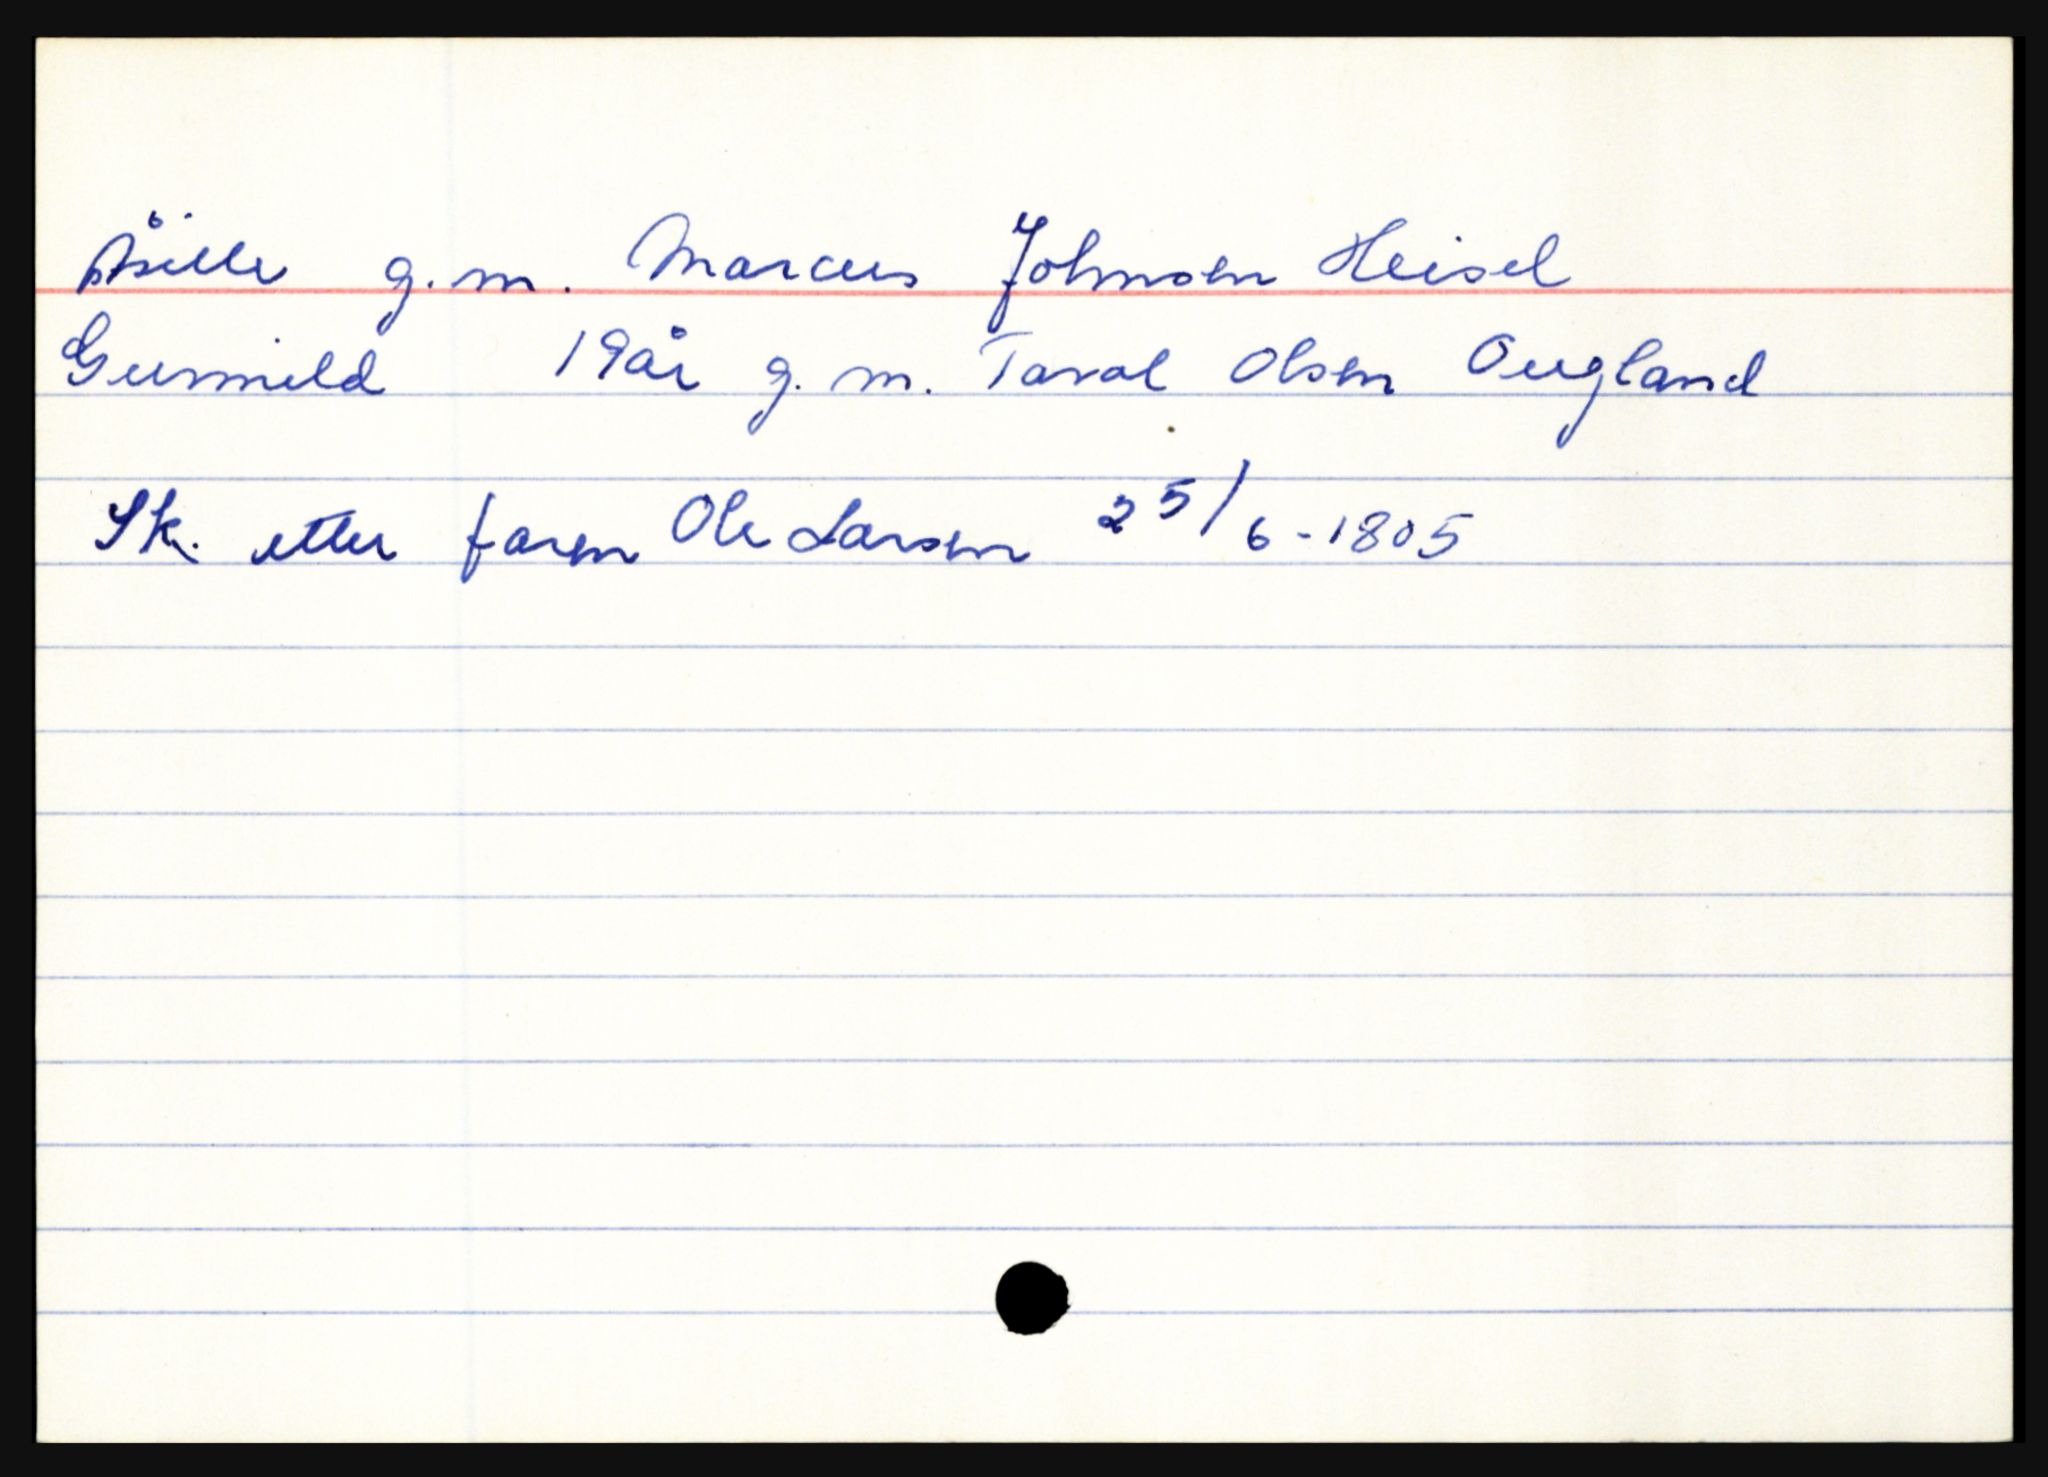 Åsille g. m. Marcus Johnsen Heisel
Gunnild 19år g. m. Taral Olsen Augland
Sk. etter faren Ole Larsen 25/6-1805